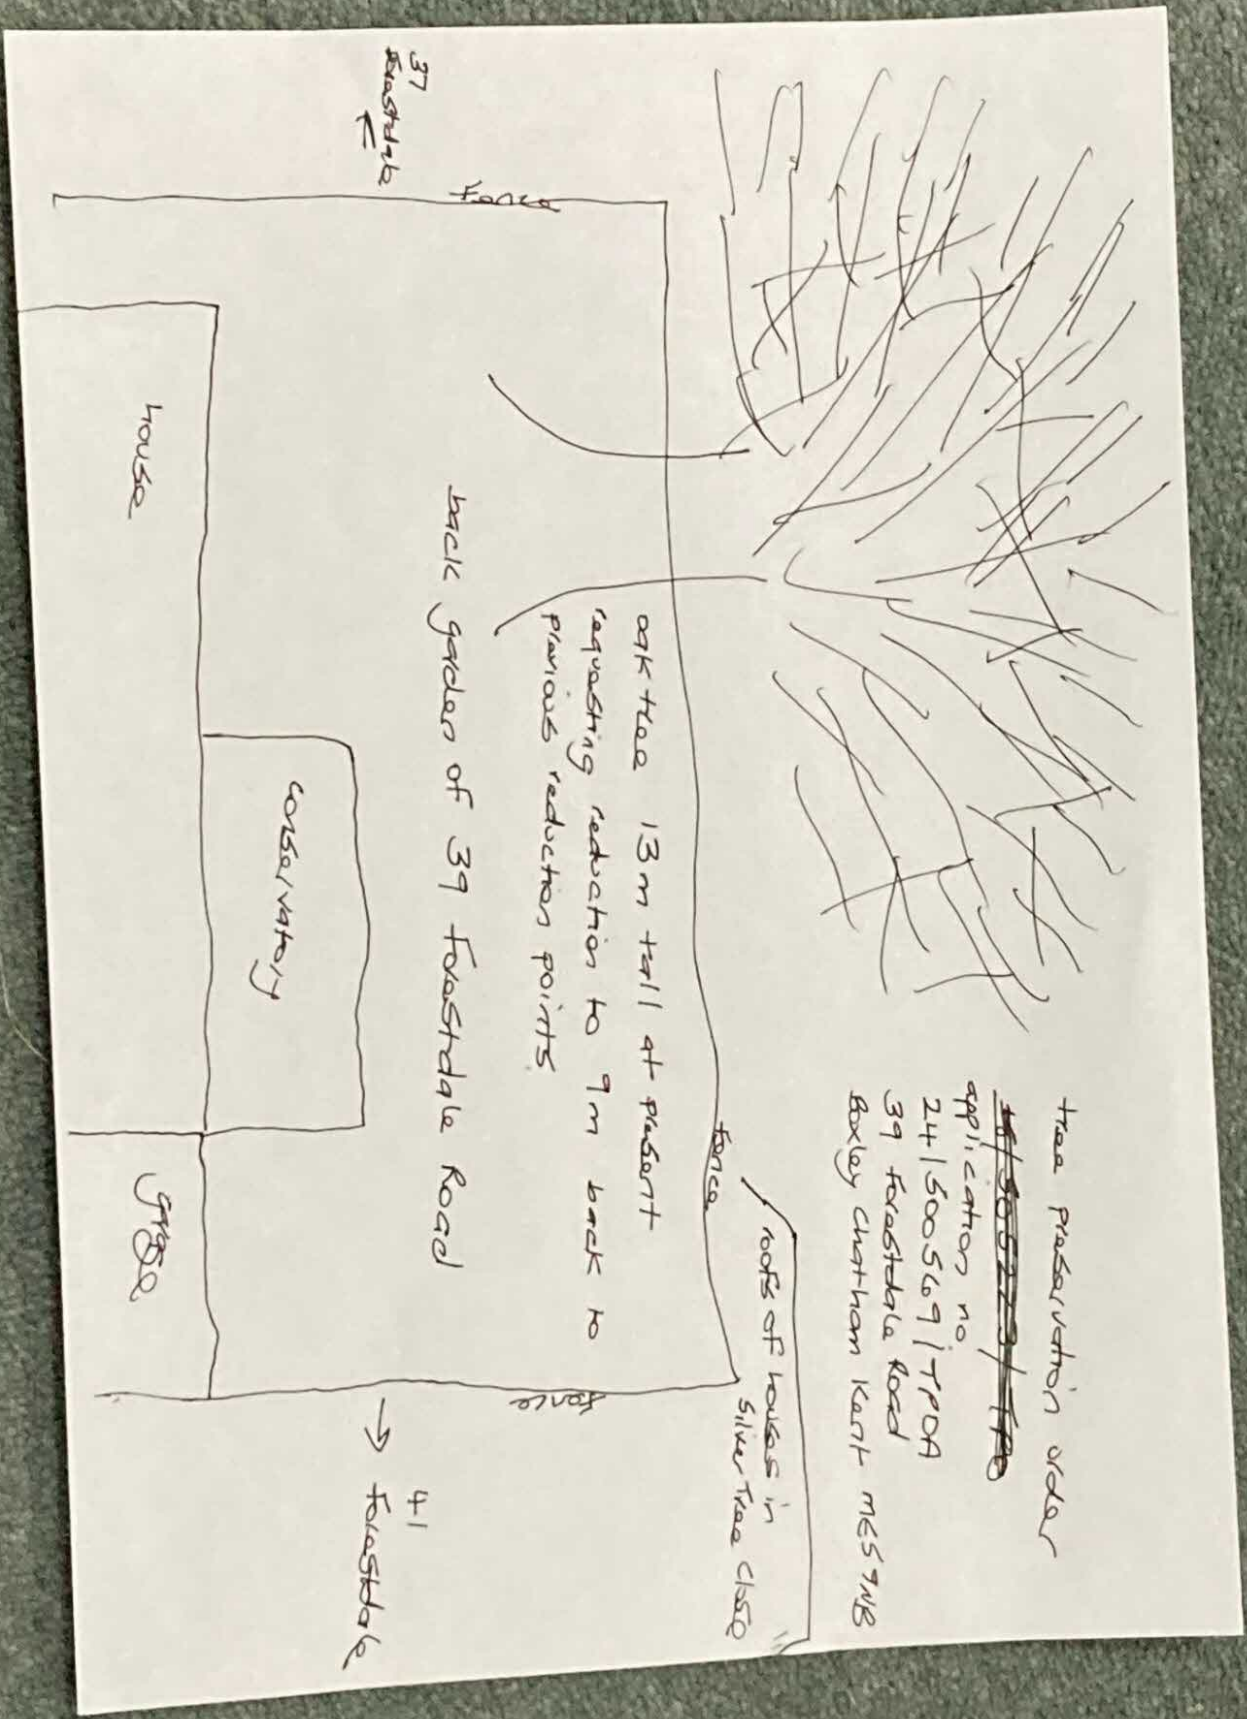 tree preservation order
application no
24/500569/TPOA
39 Forestdale Road
Boxley Chatham Kent ME59NB
roofs of houses in
Silver Tree Close
37
Forestdale
fence
fence
fence
oak tree 13m tall at present
requesting reduction to 9m back to
previous reduction points
back garden of 39 Forestdale Road
41
Forestdale
conservatory
house
garage